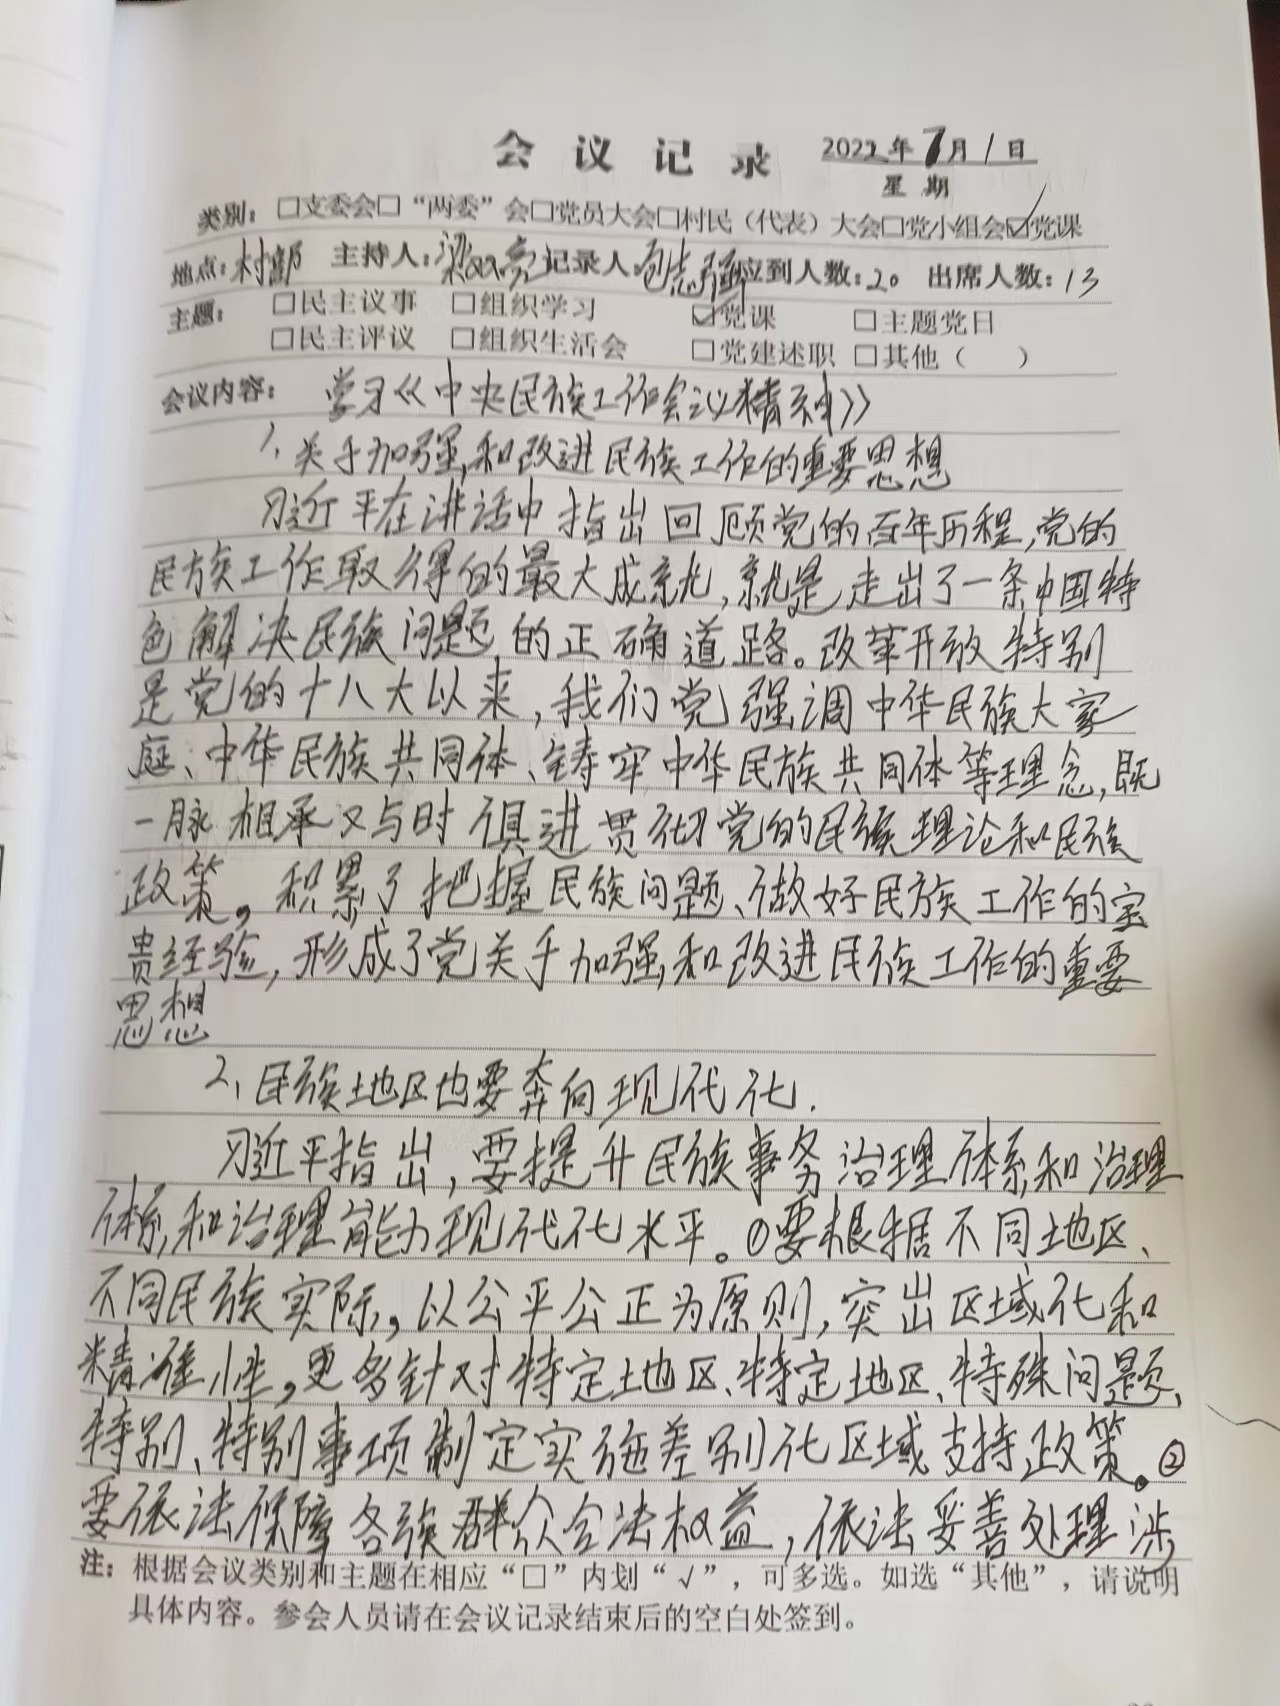 会议记录 2022年7月1日
星期
类别：□支委会□“两委”会□党员大会□村民（代表）大会□党小组会☑党课
地点：村部 主持人：梁双亮 记录人：包志强 应到人数：20 出席人数：13
主题： □民主议事 □组织学习 ☑党课 □主题党日
□民主评议 □组织生活会 □党建述职 □其他（ ）
会议内容： 学习《中央民族工作会议精神》
1、关于加强和改进民族工作的重要思想
习近平在讲话中指出回顾党的百年历程，党的
民族工作取得的最大成就，就是走出了一条中国特
色解决民族问题的正确道路。改革开放特别
是党的十八大以来，我们党强调中华民族大家
庭、中华民族共同体、铸牢中华民族共同体等理念，既
一脉相承又与时俱进贯彻党的民族理论和民族
政策。积累了把握民族问题、做好民族工作的宝
贵经验，形成了党关于加强和改进民族工作的重要
思想
2、民族地区也要奔向现代化.
习近平指出，要提升民族事务治理体系和治理
体系和治理能力现代化水平。①要根据不同地区、
不同民族实际，以公平公正为原则，突出区域化和
精准性，更多针对特定地区、特定地区、特殊问题、
特别、特别事项制定实施差别化区域支持政策。②
要依法保障各族群众合法权益，依法妥善处理涉
注：根据会议类别和主题在相应“□”内划“√”，可多选。如选“其他”，请说明
具体内容。参会人员请在会议记录结束后的空白处签到。